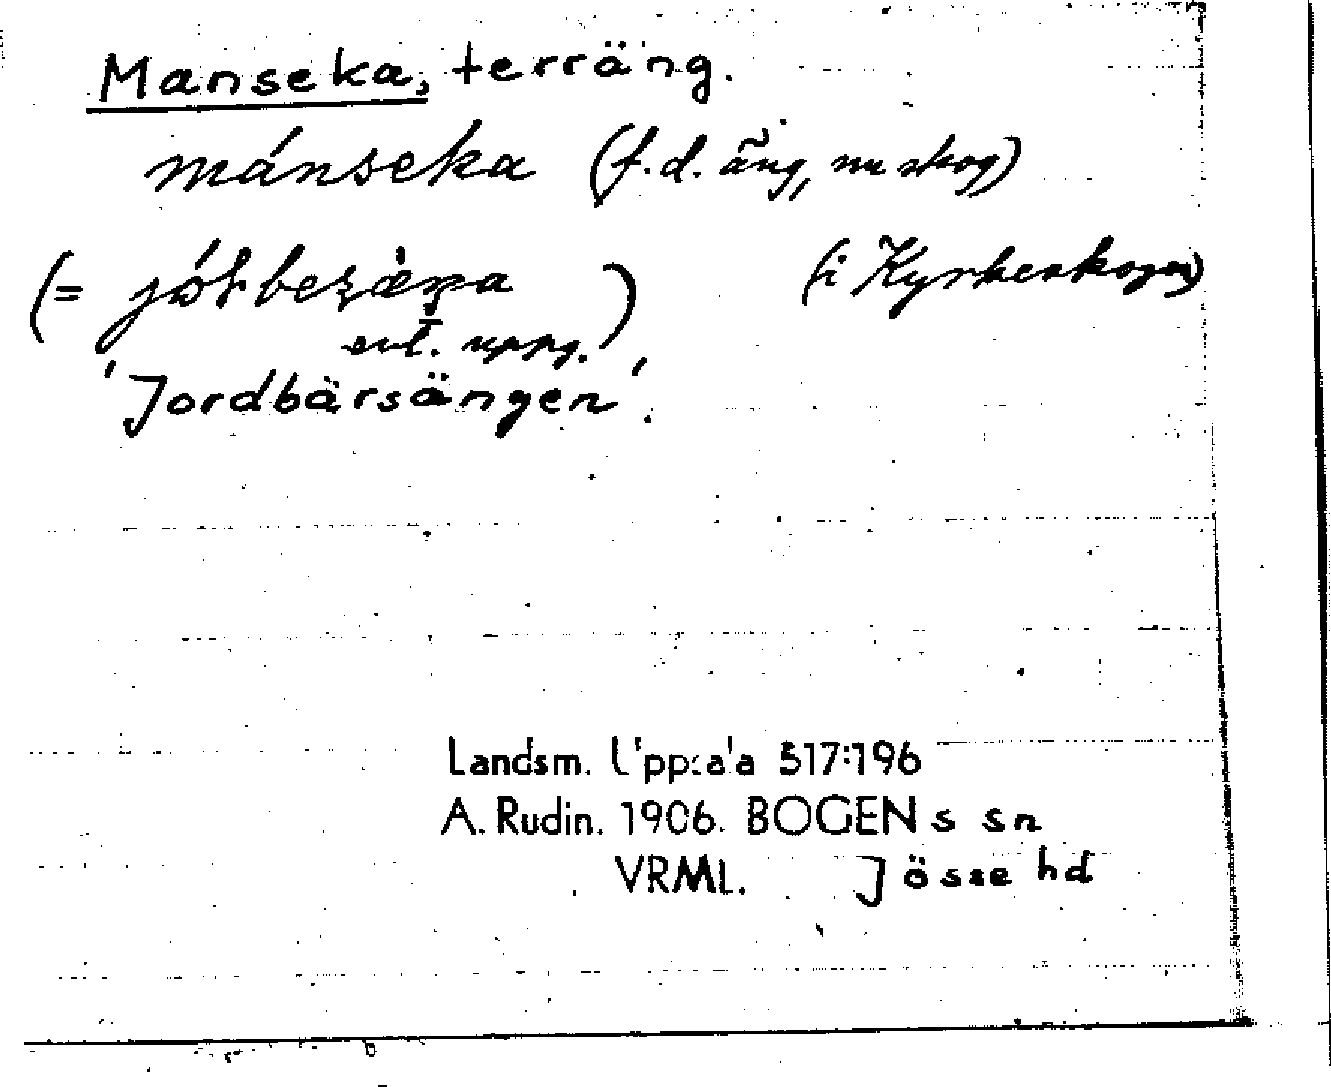 Manseka, terräng.
mánseka (f.d. äng, nu skog)
(= jólbezæ̀ŋa ) (i Kyrkeskogen)
enl. uppg.
'Jordbärsängen'.
Landsm. Upps:a'a 317:196
A. Rudin. 1906. BOGEN s sn
VRML. Jösse hd